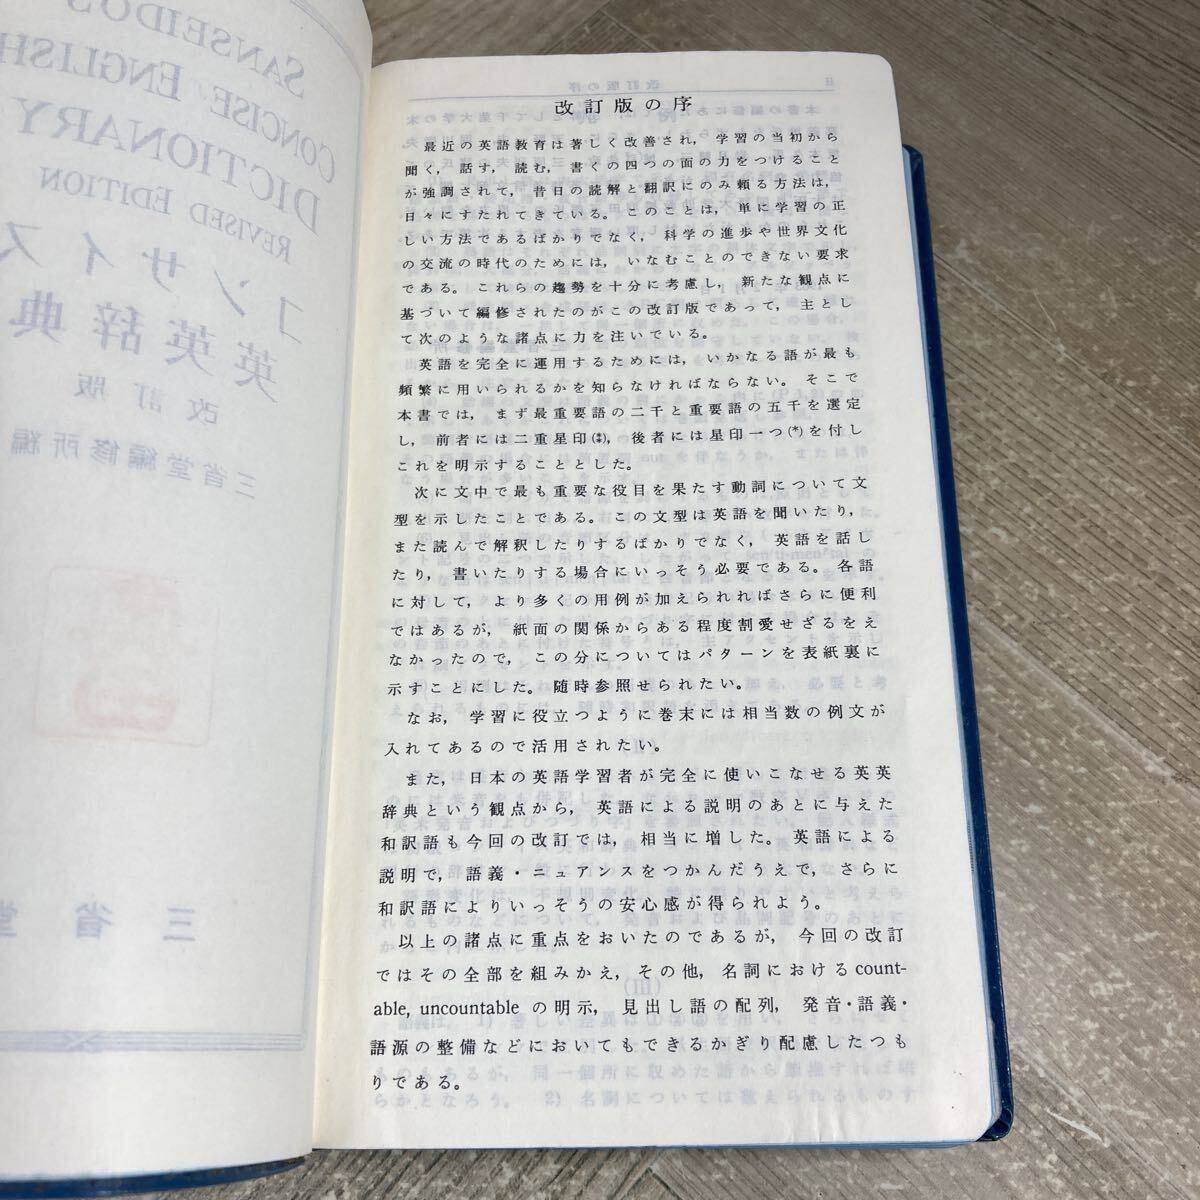 SANSEIDO'S
CONCISE ENGLISH
DICTIONARY
REVISED EDITION
コンサイス
英英辞典
改訂版
三省堂編修所編
三省堂
改訂版の序
最近の英語教育は著しく改善され，学習の当初から
聞く，話す，読む，書くの四つの面の力をつけること
が強調されて，昔日の読解と翻訳にのみ頼る方法は，
日々にすたれてきている。このことは，単に学習の正
しい方法であるばかりでなく，科学の進歩や世界文化
の交流の時代のためには，いなむことのできない要求
である。これらの趨勢を十分に考慮し，新たな観点に
基づいて編修されたのがこの改訂版であって，主とし
て次のような諸点に力を注いでいる。
英語を完全に運用するためには，いかなる語が最も
頻繁に用いられるかを知らなければならない。そこで
本書では，まず最重要語の二千と重要語の五千を選定
し，前者には二重星印(⁑)，後者には星印一つ(*)を付し
これを明示することとした。
次に文中で最も重要な役目を果たす動詞について文
型を示したことである。この文型は英語を聞いたり，
また読んで解釈したりするばかりでなく，英語を話し
たり，書いたりする場合にいっそう必要である。各語
に対して，より多くの用例が加えられればさらに便利
ではあるが，紙面の関係からある程度割愛せざるをえ
なかったので，この分についてはパターンを表紙裏に
示すことにした。随時参照せられたい。
なお，学習に役立つように巻末には相当数の例文が
入れてあるので活用されたい。
また，日本の英語学習者が完全に使いこなせる英英
辞典という観点から，英語による説明のあとに与えた
和訳語も今回の改訂では，相当に増した。英語による
説明で，語義・ニュアンスをつかんだうえで，さらに
和訳語によりいっそうの安心感が得られよう。
以上の諸点に重点をおいたのであるが，今回の改訂
ではその全部を組みかえ，その他，名詞におけるcount-
able, uncountable の明示，見出し語の配列，発音・語義・
語源の整備などにおいてもできるかぎり配慮したつも
りである。